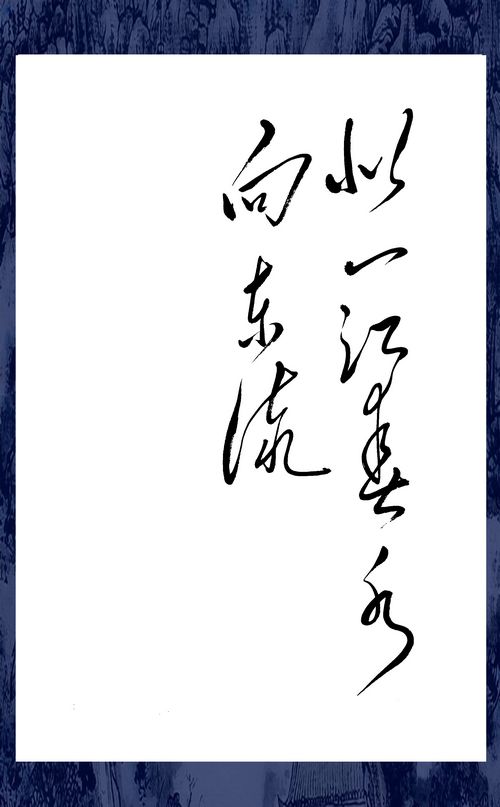 似一江春水
向东流